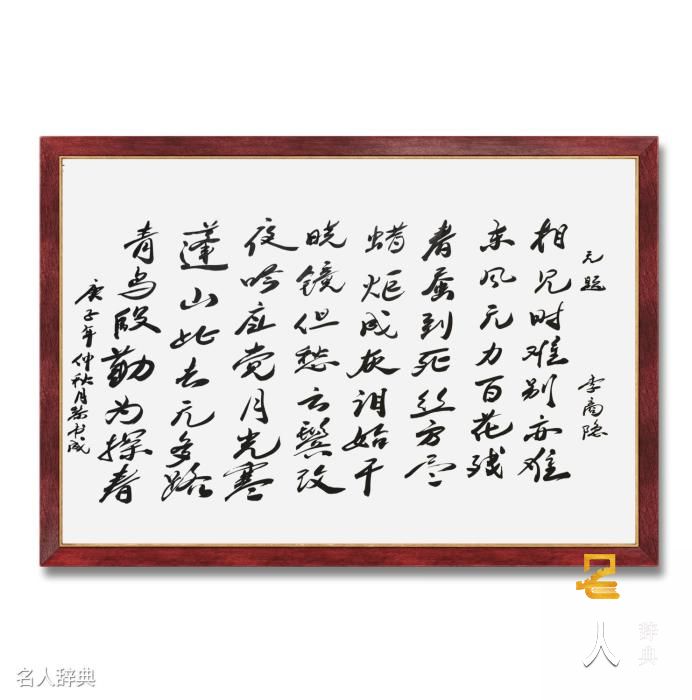 无题 李商隐
相见时难别亦难
东风无力百花残
春蚕到死丝方尽
蜡炬成灰泪始干
晓镜但愁云鬓改
夜吟应觉月光寒
蓬山此去无多路
青鸟殷勤为探看
庚子年仲秋月
名人辞典
名人辞典